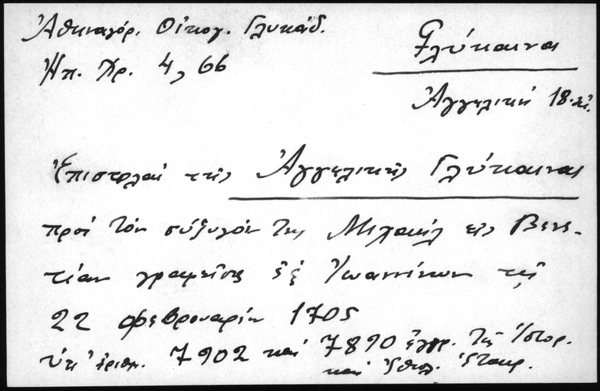 Ἀθηναγόρ. Οἰκογ. Γλυκάδ.
Ἠπ. Χρ. 4, 66
Γλύκαινα
Ἀγγελική 18. αἰ.
Ἐπιστολαί τῆς Ἀγγελικῆς Γλύκαινας
πρός τόν σύζυγόν της Μιχαήλ εἰς Βενε-
τίαν γραφεῖσαι ἐξ Ἰωαννίνων τῇ
22 φεβρουαρίου 1705
ὑπ' ἀριθμ. 7902 καί 7890 ἔγγρ. τῆς Ἱστορ.
καί Ἐθνολ. Ἑταιρ.